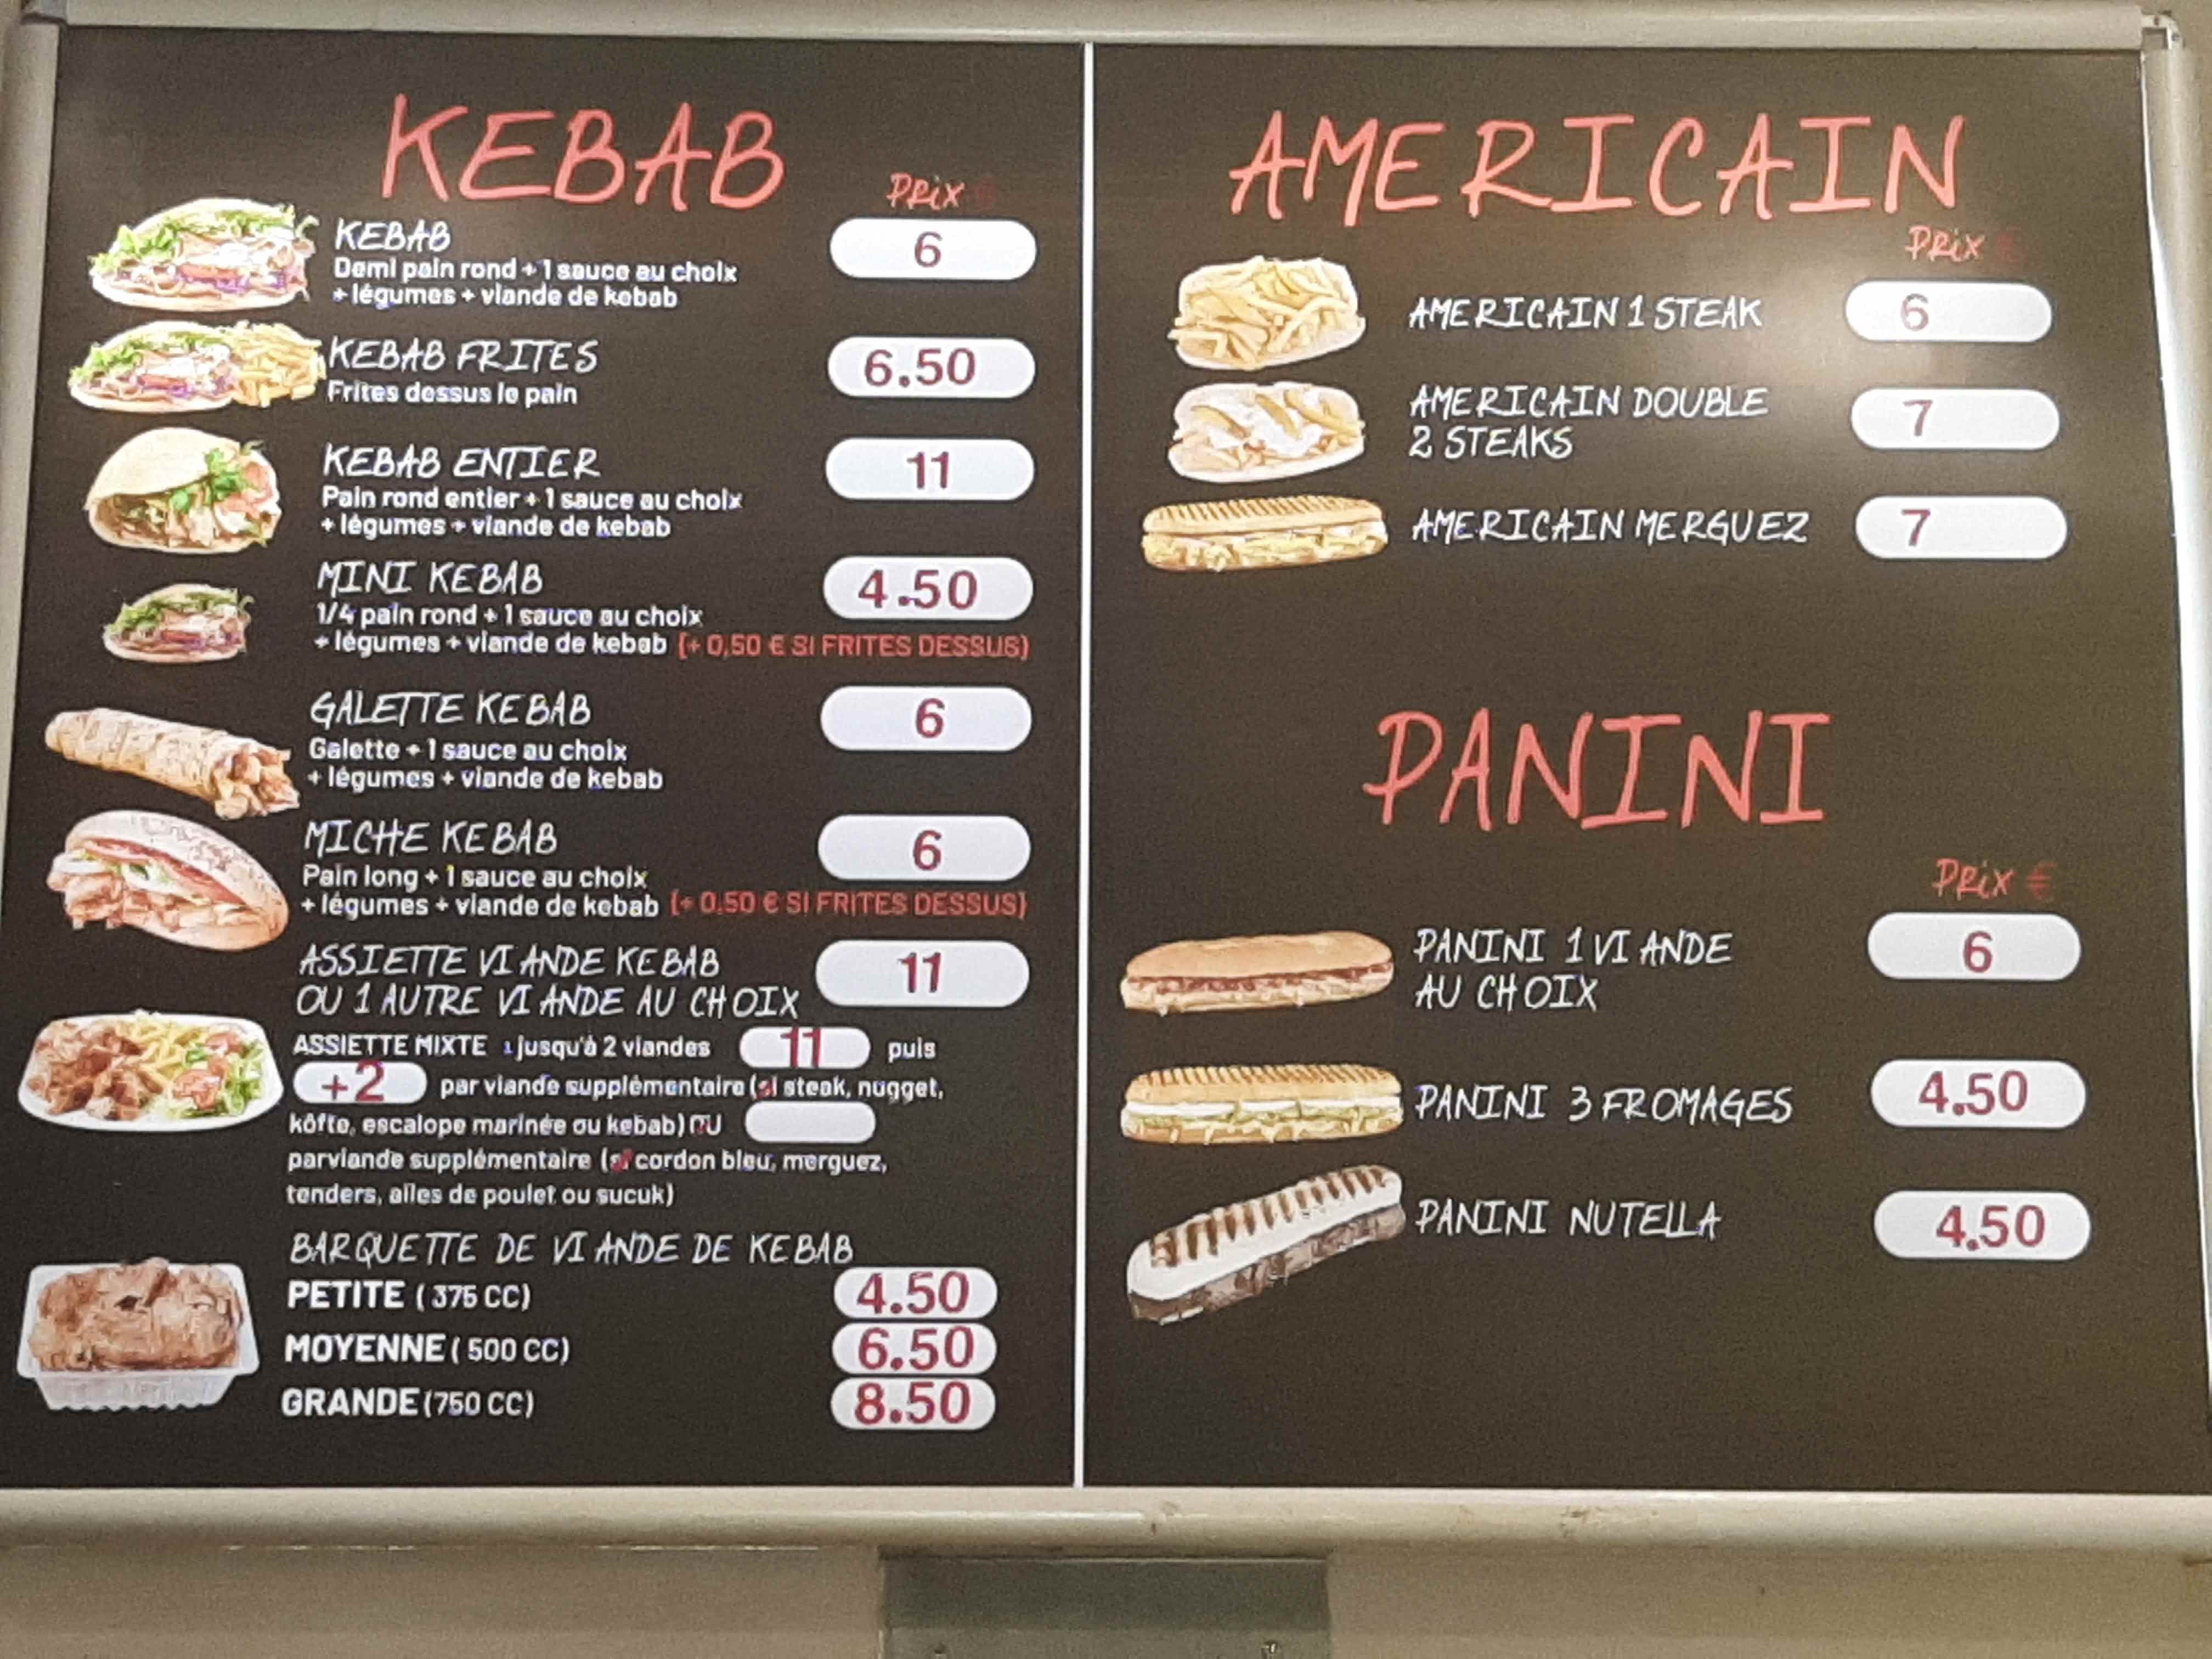 KEBAB
Prix €
KEBAB
6
Demi pain rond + 1 sauce au choix
+ légumes + viande de kebab
KEBAB FRITES
6.50
Frites dessus le pain
KEBAB ENTIER
11
Pain rond entier + 1 sauce au choix
+ légumes + viande de kebab
MINI KEBAB
4.50
1/4 pain rond + 1 sauce au choix
+ légumes + viande de kebab (+ 0,50 € SI FRITES DESSUS)
GALETTE KEBAB
6
Galette + 1 sauce au choix
+ légumes + viande de kebab
MICHE KEBAB
6
Pain long + 1 sauce au choix
+ légumes + viande de kebab (+ 0,50 € SI FRITES DESSUS)
ASSIETTE VIANDE KEBAB
11
OU 1 AUTRE VIANDE AU CHOIX
ASSIETTE MIXTE : jusqu'à 2 viandes 11 puis
+2 par viande supplémentaire (si steak, nugget,
köfte, escalope marinée ou kebab) OU
parviande supplémentaire (si cordon bleu, merguez,
tenders, ailes de poulet ou sucuk)
BARQUETTE DE VIANDE DE KEBAB
PETITE ( 375 CC) 4.50
MOYENNE ( 500 CC) 6.50
GRANDE (750 CC) 8.50
AMERICAIN
Prix €
AMERICAIN 1 STEAK 6
AMERICAIN DOUBLE
2 STEAKS
7
AMERICAIN MERGUEZ 7
PANINI
Prix €
PANINI 1 VIANDE
AU CHOIX
6
PANINI 3 FROMAGES 4.50
PANINI NUTELLA 4.50